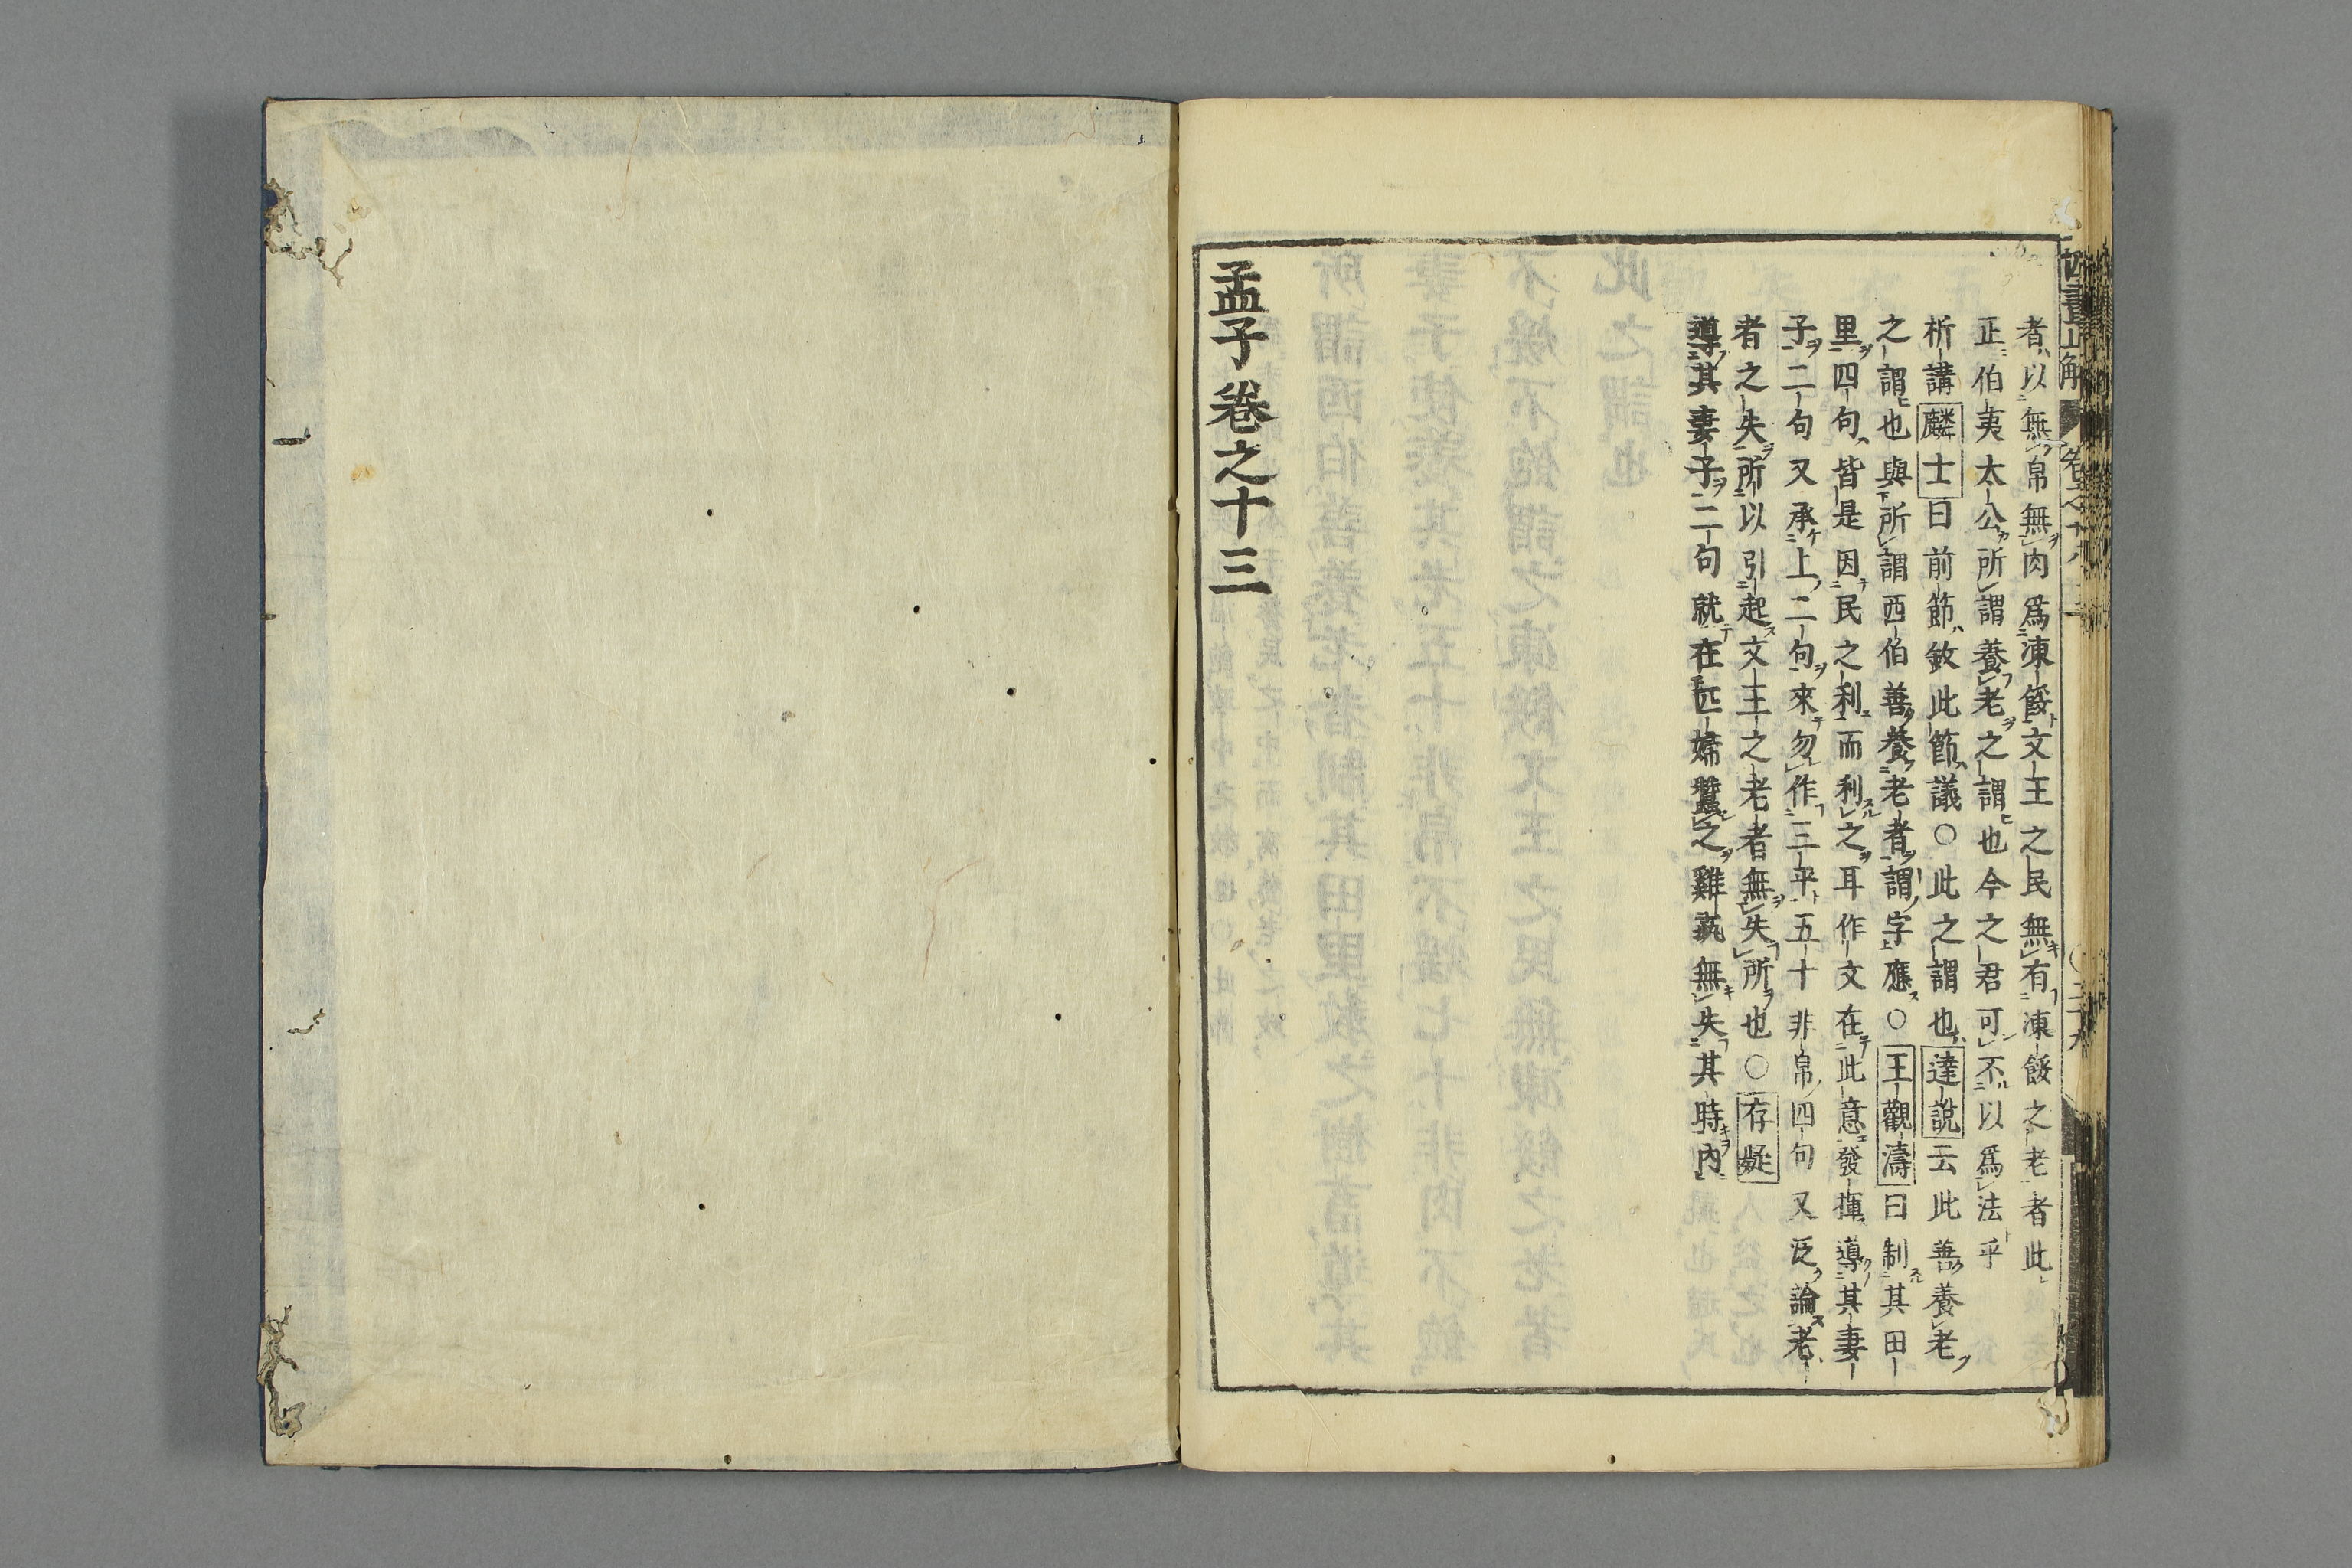 者以無帛無肉爲凍餒文王之民無有凍餒之老者此
正伯夷太公所謂養老之謂也今之君可不以爲法乎
析講麟士曰前節敘此節議○此之謂也達說云此善養老
之謂也與所謂西伯善養老者謂字應○王觀濤曰制其田
里四句皆是因民之利而利之耳作文在此意發揮導其妻
子二句又承上二句來勿作三平五十非帛四句又泛論老
者之失所以引起文王之老者無失所也○存疑
導其妻子二句就在匹婦蠶之雞彘無失其時內
孟子卷之十三
四書正解